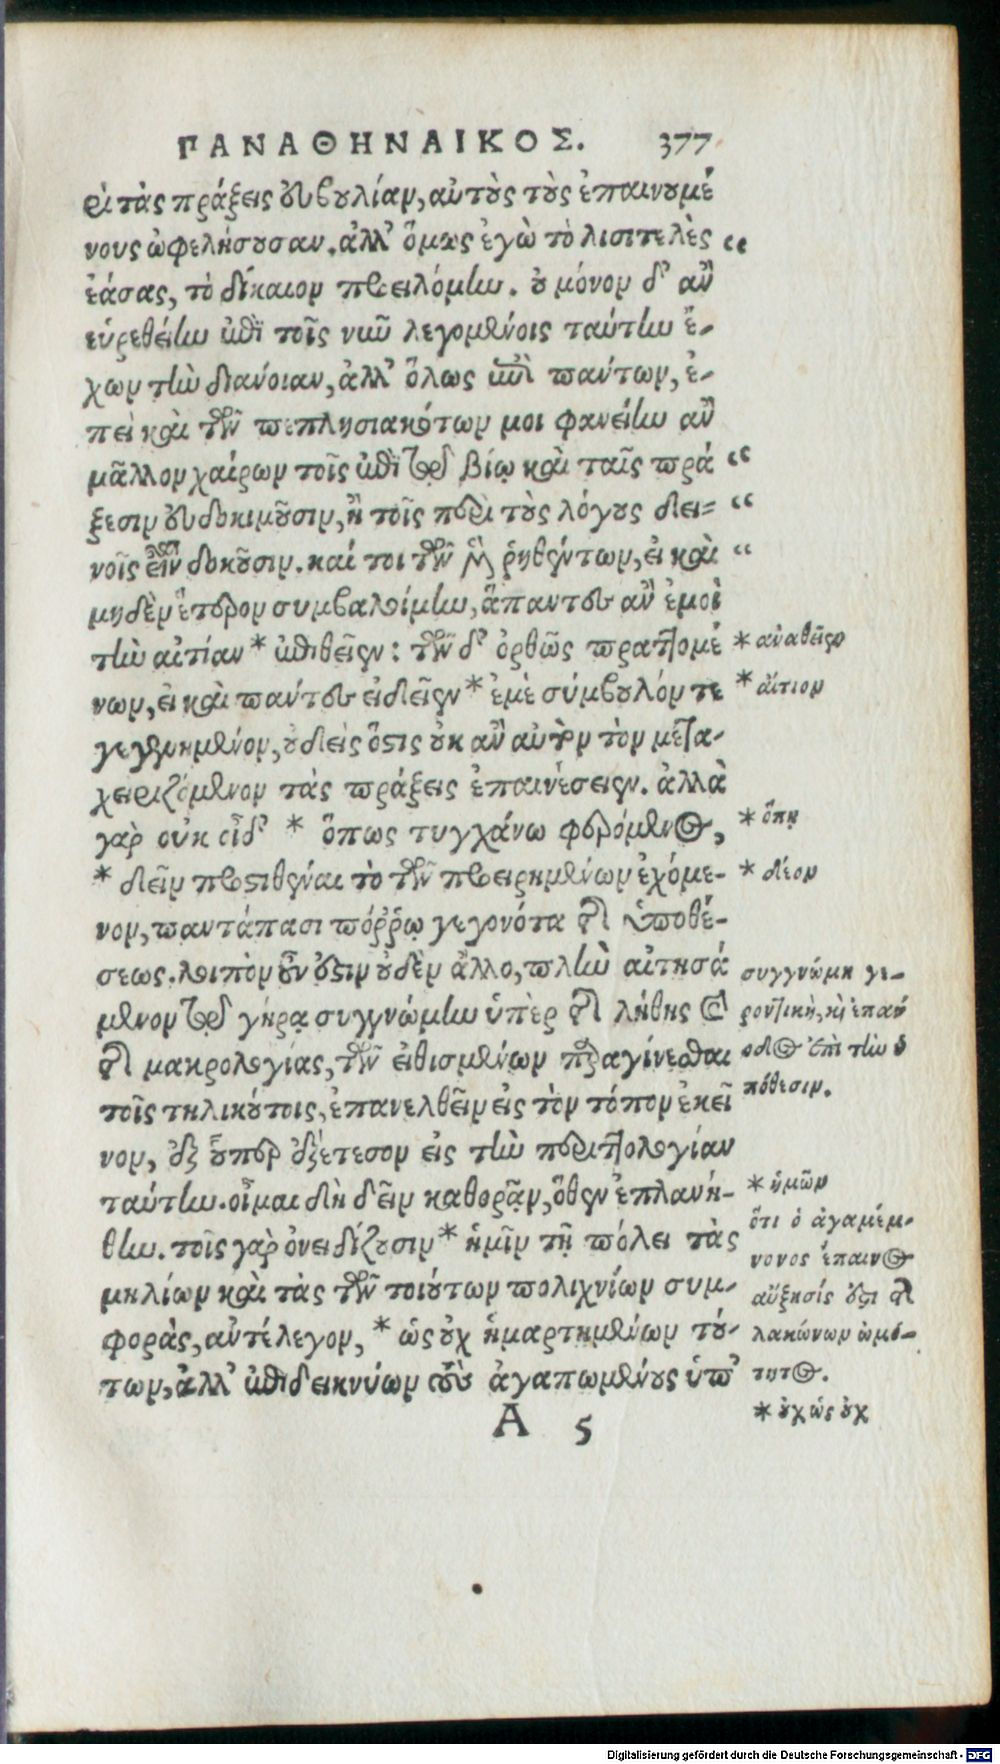 ΠΑΝΑΘΗΝΑΙΚΟΣ. 377
ρὶ τὰς πράξεις εὐβουλίαν, αὐτοὺς τοὺς ἐπαινουμέ
νους ὠφελήσουσαν. ἀλλ' ὅμως ἐγὼ τὸ λυσιτελὲς
ἐάσας, τὸ δίκαιον προειλόμην. οὐ μόνον δ' ἂν
εὑρεθείην ἐπὶ τοῖς νῦν λεγομένοις ταύτην ἔ-
χων τὴν διάνοιαν, ἀλλ' ὅλως ἐπὶ πάντων, ἐ-
πεὶ καὶ τῶν πεπλησιακότων μοι φανείην ἂν
μᾶλλον χαίρων τοῖς ἐπὶ τῷ βίῳ καὶ ταῖς πρά
ξεσιν εὐδοκιμοῦσιν, ἢ τοῖς περὶ τοὺς λόγους δει-
νοῖς εἶναι δοκοῦσιν. καί τοι τῶν μὲν ῥηθέντων, εἰ καὶ
μηδὲν ἕτερον συμβαλοίμην, ἅπαντες ἂν ἐμοὶ
τὴν αἰτίαν * ἐπιθεῖεν: τῶν δ' ὀρθῶς πραττομέ
νων, εἰ καὶ πάντες εἰδεῖεν * ἐμὲ σύμβουλόν τε
γεγενημένον, οὐδεὶς ὅστις οὐκ ἂν αὐτὸν τὸν μετα-
χειριζόμενον τὰς πράξεις ἐπαινέσειεν. ἀλλὰ
γὰρ οὐκ οἶδ' * ὅπως τυγχάνω φερόμενος,
* δεῖν προστιθέναι τὸ τῶν προειρημένων ἐχόμε-
νον, παντάπασι πόῤῥω γεγονότα τῆς ὑποθέ-
σεως. λοιπὸν οὖν ἐστιν οὐδὲν ἄλλο, πλὴν αἰτησά
μενον τῷ γήρᾳ συγγνώμην ὑπὲρ τῆς λήθης καὶ
τῆς μακρολογίας, τῶν εἰθισμένων παραγίνεσθαι
τοῖς τηλικούτοις, ἐπανελθεῖν εἰς τὸν τόπον ἐκεῖ
νον, ἐξ οὗπερ ἐξέπεσον εἰς τὴν περιττολογίαν
ταύτην. οἶμαι δὴ δεῖν καθορᾷν, ὅθεν ἐπλανή-
θην. τοῖς γὰρ ὀνειδίζουσιν * ἡμῖν τῇ πόλει τὰς
μηλίων καὶ τὰς τῶν τοιούτων πολιχνίων συμ-
φορὰς, ἀντέλεγον, * ὡς οὐχ ἡμαρτημένων τού-
των, ἀλλ' ἐπιδεικνύων τοὺς ἀγαπωμένους ὑπ'
A 5
* ἀναθεῖεν
* αἴτιον
* ὅπῃ
* δέον
συγγνώμη γε-
ροντικὴ, καὶ ἐπάν
οδος ἐπὶ τὴν ὑ
πόθεσιν.
* ἡμῶν
ὅτι ὁ ἀγαμέμ-
νονος ἔπαινος
αὔξησίς ἐστι τῆς
λακώνων ὠμό-
τητος.
* οὐχ ὡς οὐχ
Digitalisierung gefördert durch die Deutsche Forschungsgemeinschaft - DFG